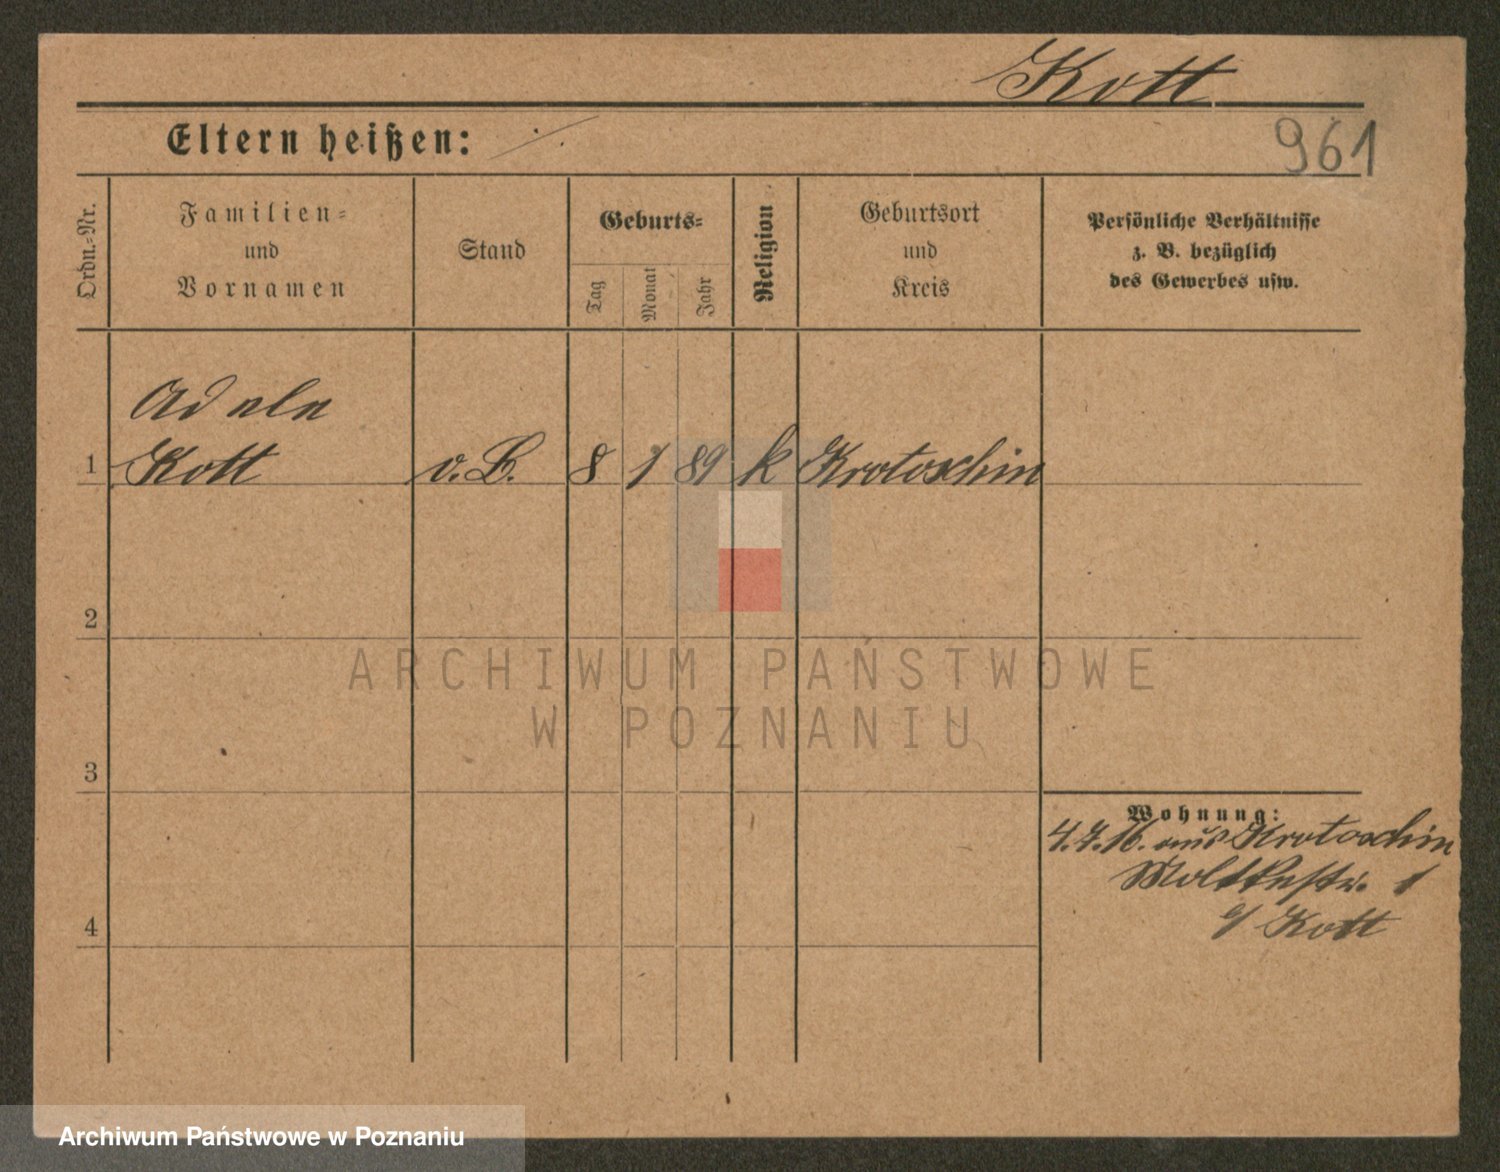 Kott
Eltern heißen:
961
Ordn.-Nr.
Familien-
und
Vornamen
Stand
Geburts-
Tag
Monat
Jahr
Religion
Geburtsort
und
Kreis
Persönliche Verhältnisse
z. B. bezüglich
des Gewerbes usw.
Adele
1 Kott v. B. 8 1 89 k Krotoschin
2
ARCHIWUM PAŃSTWOWE
W POZNANIU
3
Wohnung:
4.7.16. aus Krotoschin
Moltkestr. 1
4
b/ Kott
Archiwum Państwowe w Poznaniu